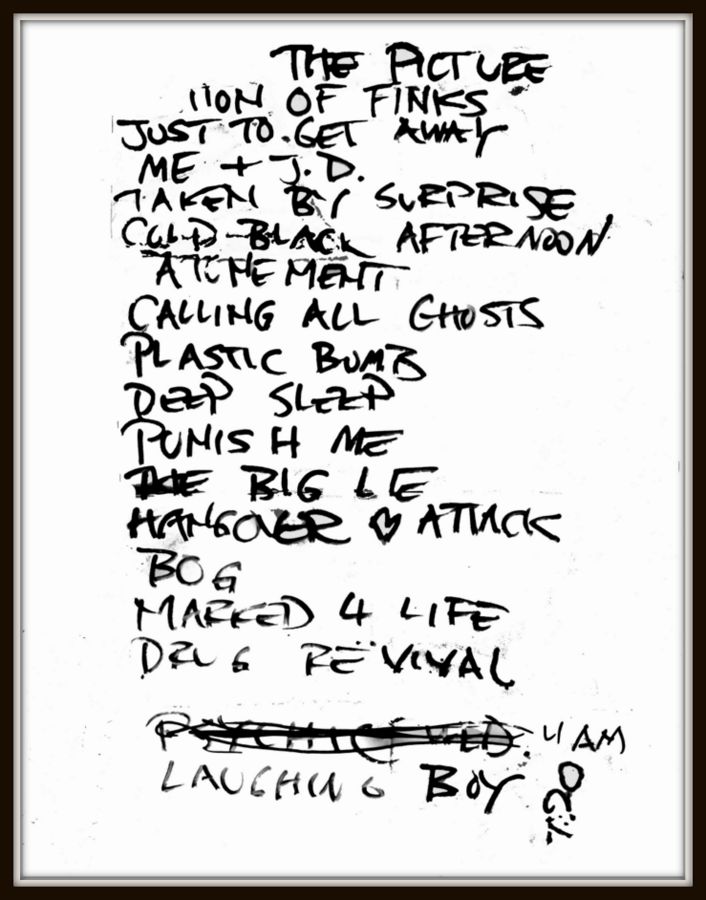 THE PICTURE
IION OF FINKS
JUST TO GET AWAY
ME + J.D.
TAKEN BY SURPRISE
COLD BLACK AFTERNOON
ATONEMENT
CALLING ALL GHOSTS
PLASTIC BOMB
DEEP SLEEP
PUNISH ME
THE BIG LIE
HANGOVER ♡ ATTACK
BOG
MARKED 4 LIFE
DRUG REVIVAL
4AM
LAUGHING BOY
7:20